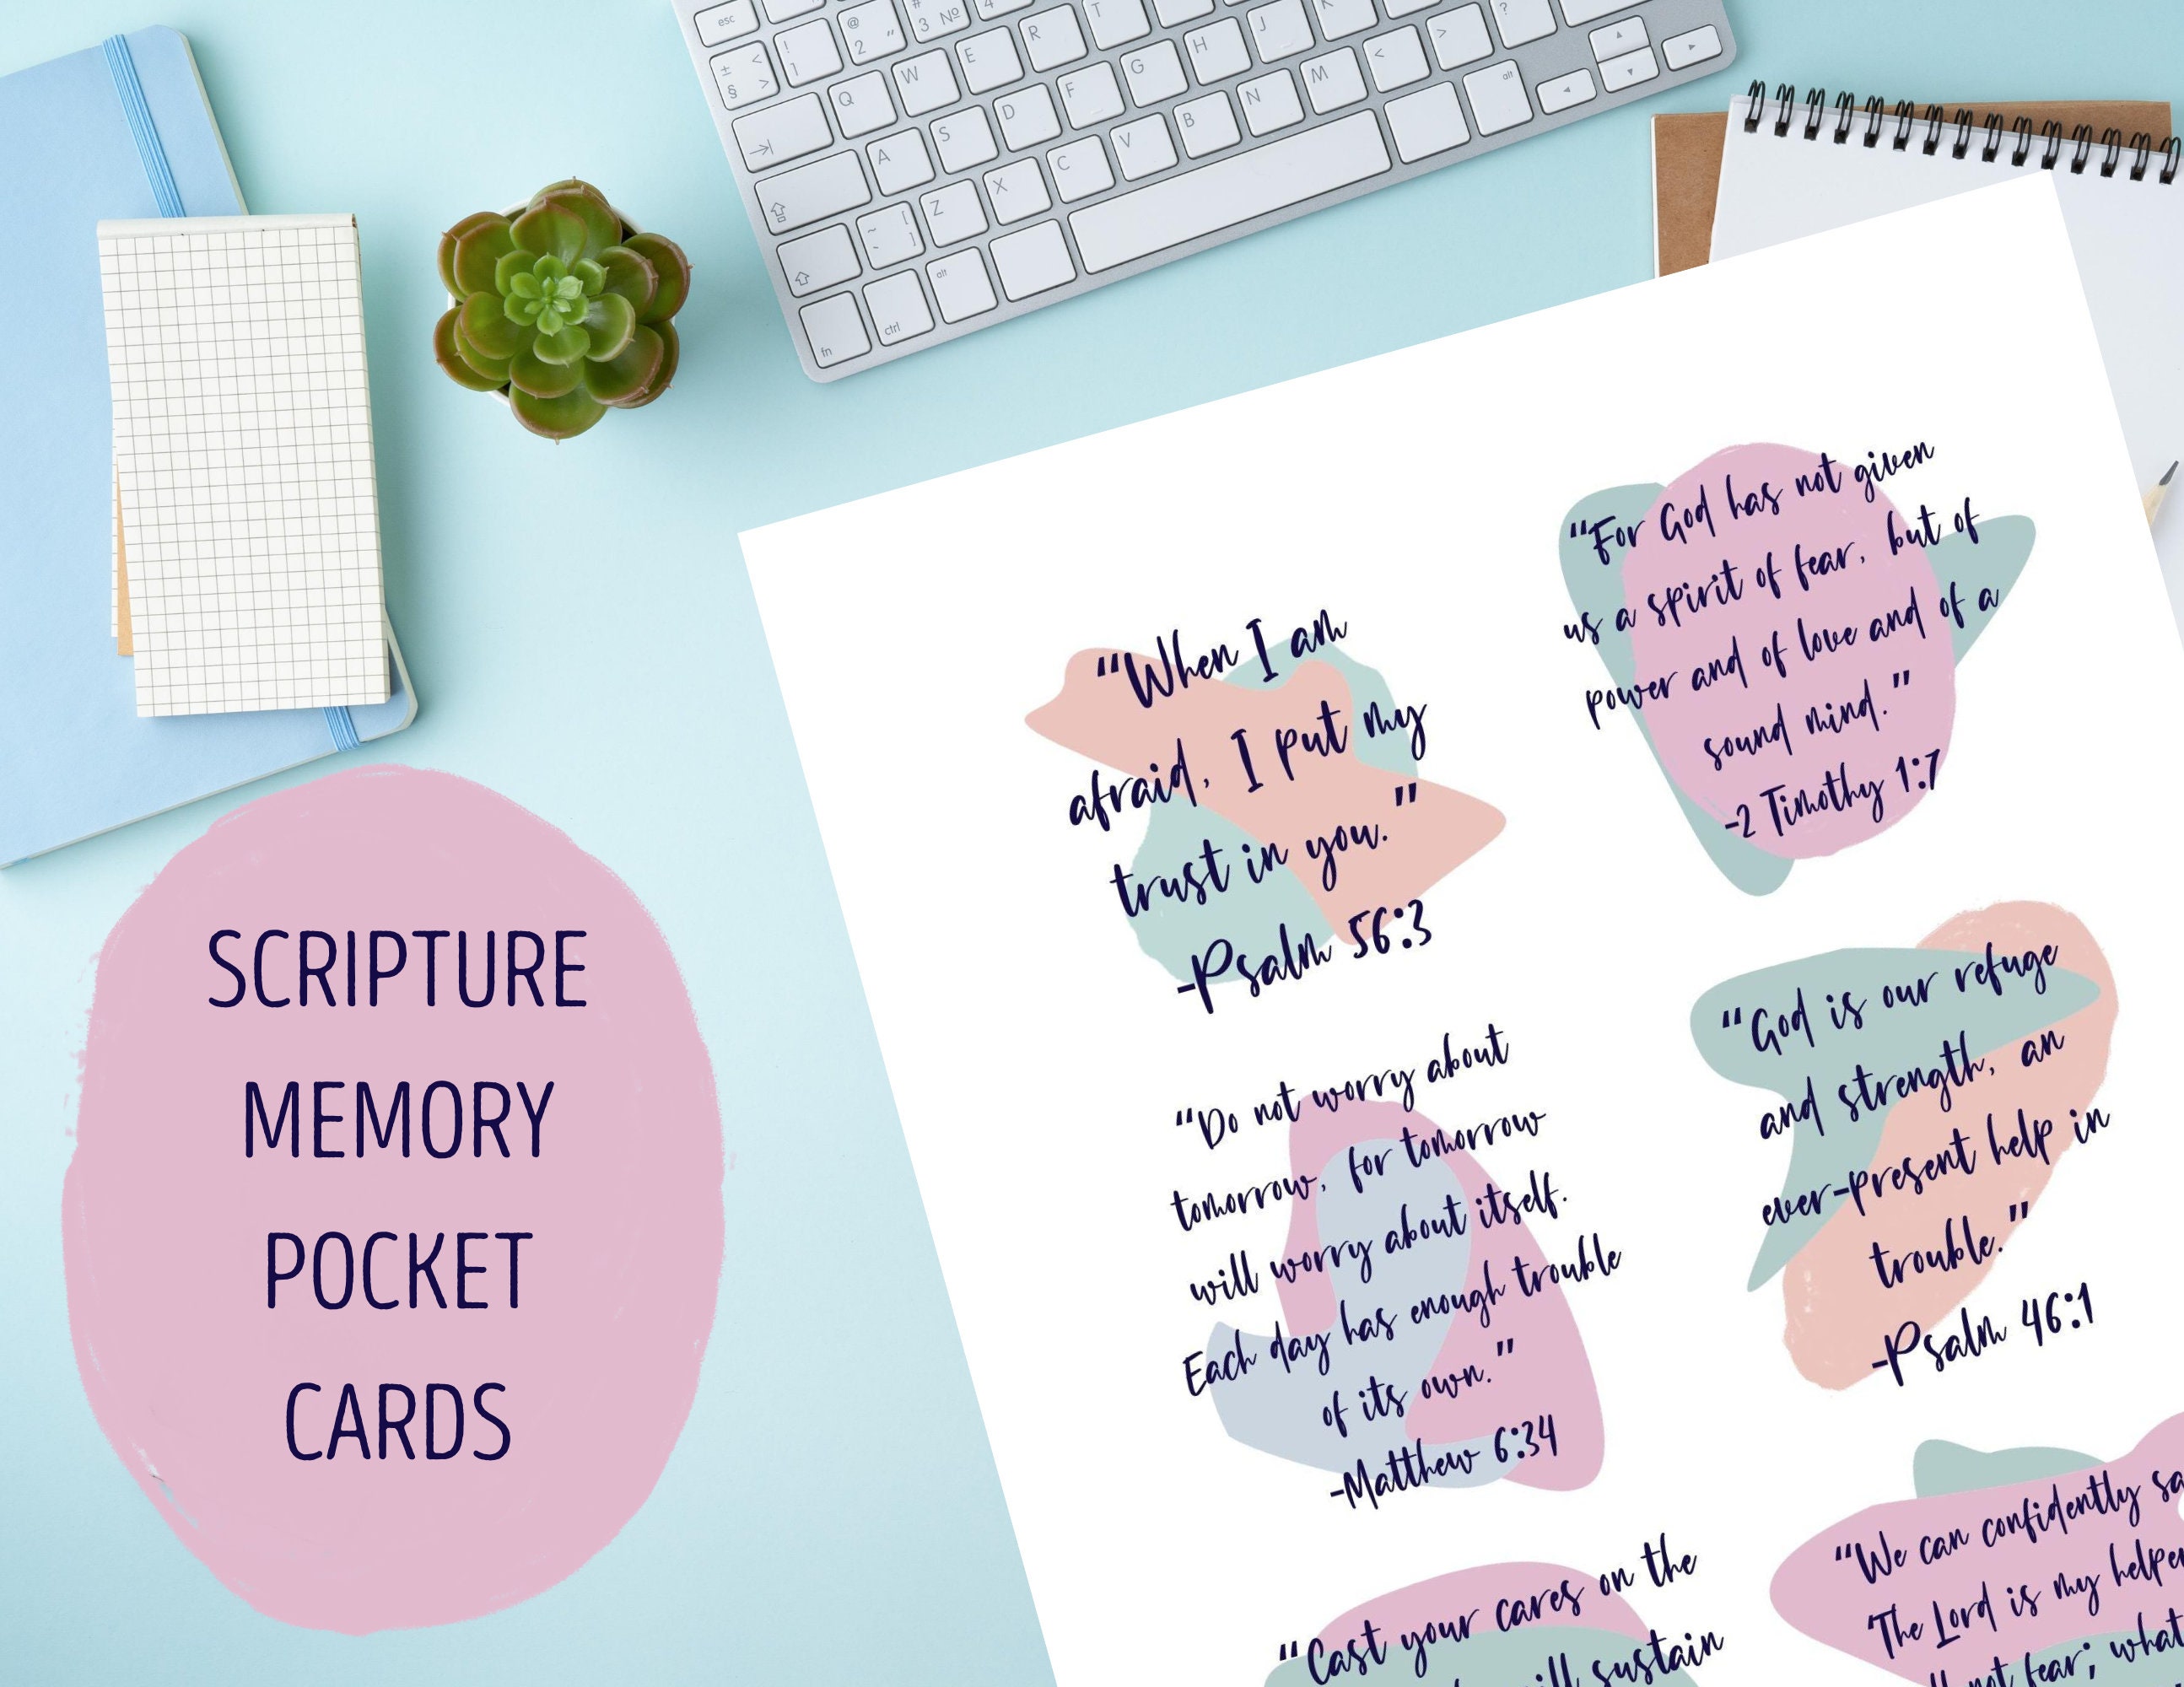 SCRIPTURE
MEMORY
POCKET
CARDS
"When I am
afraid, I put my
trust in you."
-Psalm 56:3
"For God has not given
us a spirit of fear, but of
power and of love and of a
sound mind."
-2 Timothy 1:7
"Do not worry about
tomorrow, for tomorrow
will worry about itself.
Each day has enough trouble
of its own."
-Matthew 6:34
"God is our refuge
and strength, an
ever-present help in
trouble."
-Psalm 46:1
"Cast your cares on the
will sustain
"We can confidently
'The Lord is my
not fear; what
esc
Q
W
E
R
T
A
S
D
F
G
H
J
K
Z
X
C
V
B
N
M
alt
fn
ctrl
alt